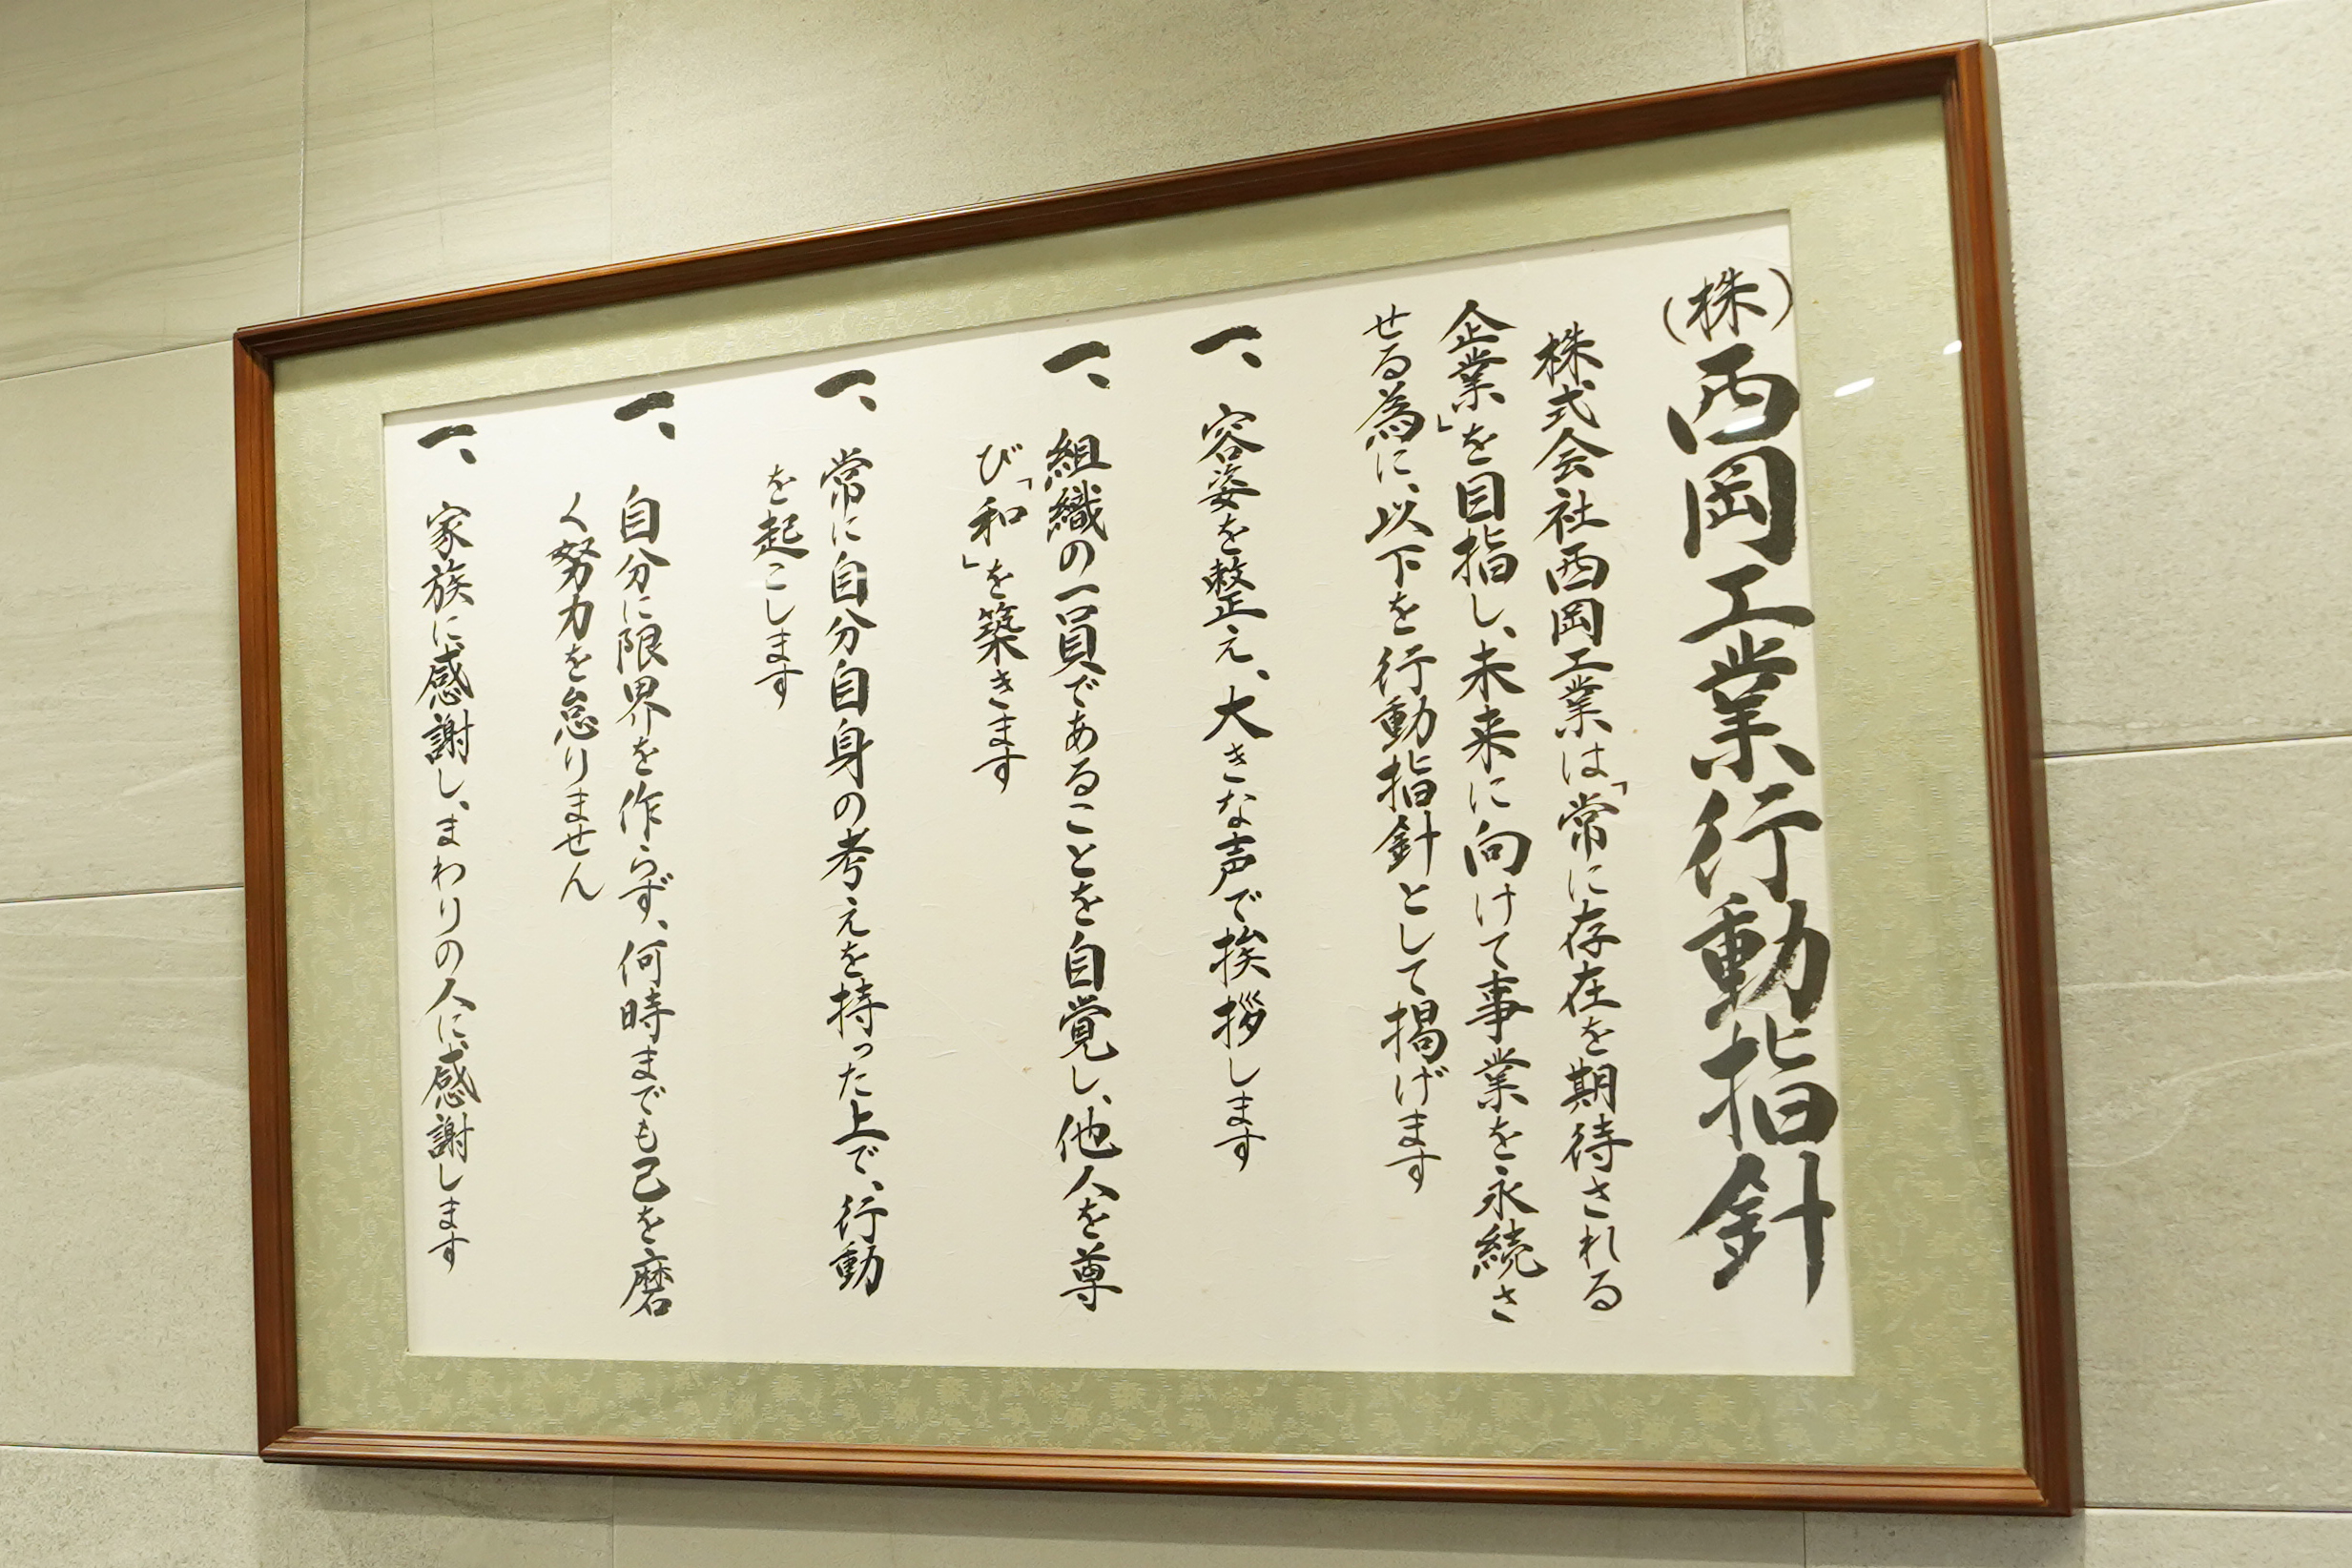 (株)西岡工業行動指針
株式会社西岡工業は「常に存在を期待される
企業」を目指し、未来に向けて事業を永続さ
せる為に、以下を行動指針として掲げます
一、容姿を整え、大きな声で挨拶します
一、組織の一員であることを自覚し、他人を尊
び「和」を築きます
一、常に自分自身の考えを持った上で、行動
を起こします
一、自分に限界を作らず、何時までも己を磨
く努力を怠りません
一、家族に感謝し、まわりの人に感謝します